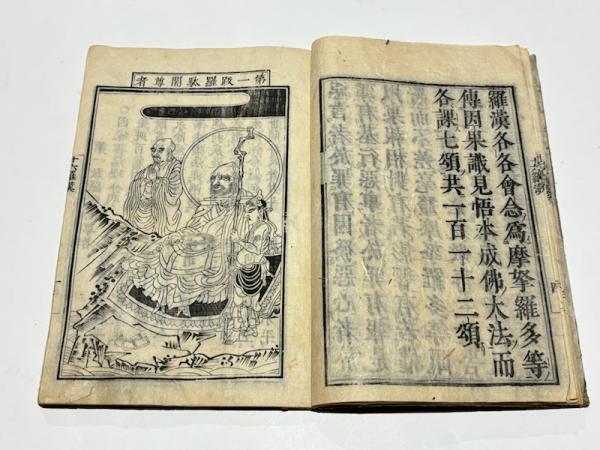 羅漢各各會念爲摩拏羅多等
傳因果識見悟本成佛大法而
各課七頌共一百一十二頌
第一跋羅馱闍尊者
十六羅漢